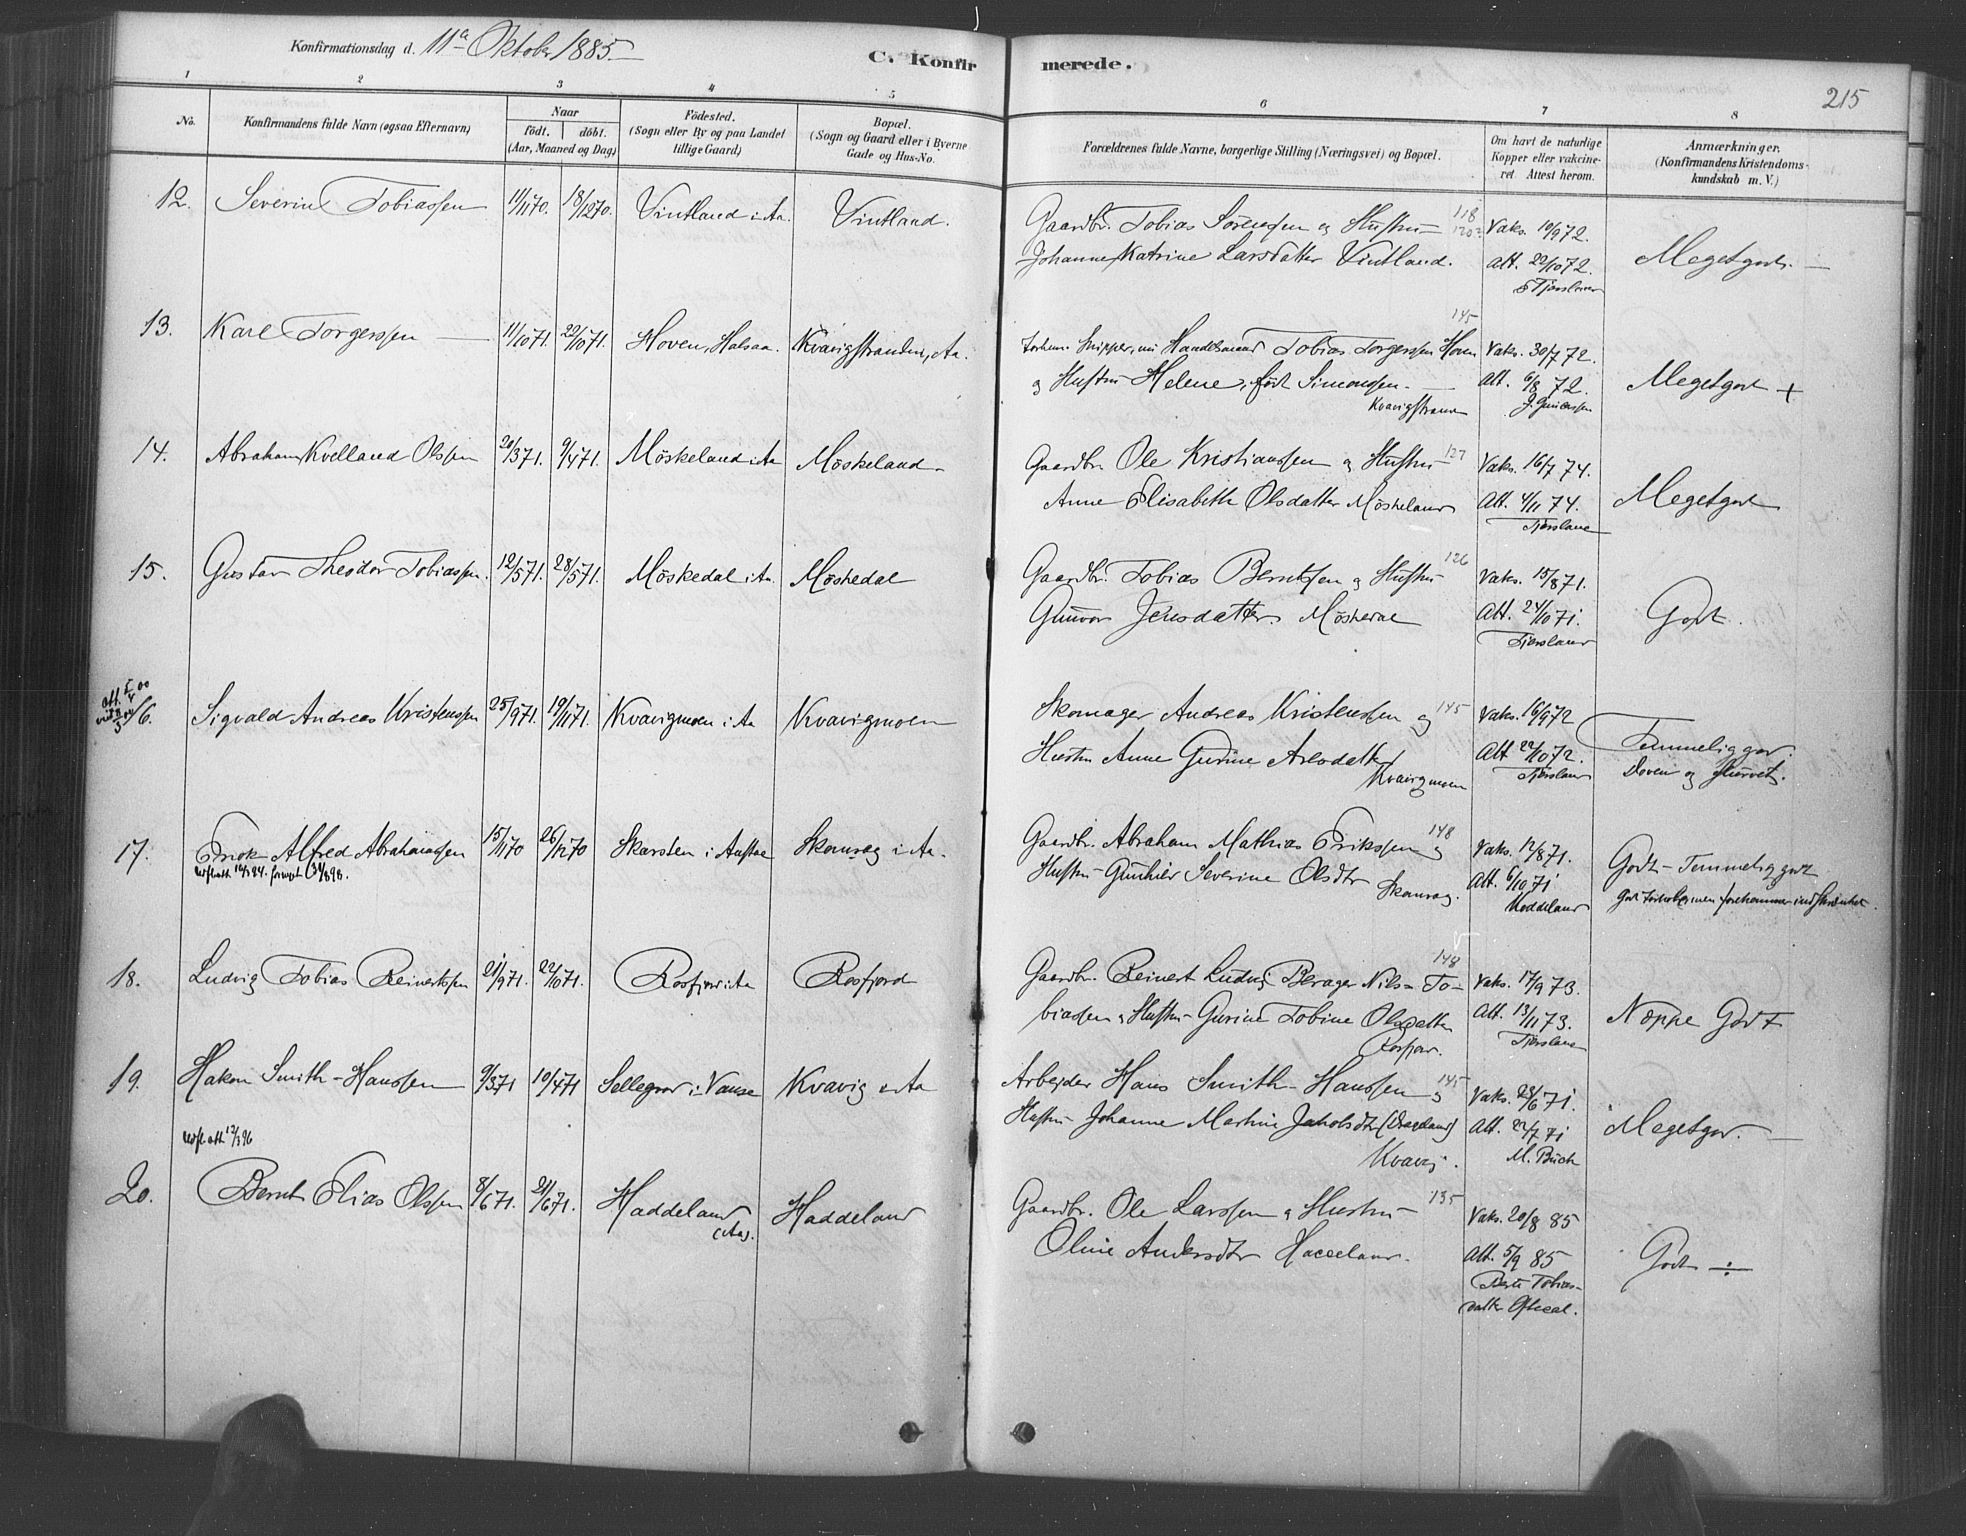 Konfirmationsdag d. 11te Oktober 1885.
C. Konfirmerede.
215
1 2 3 4 5 6 7 8
No.
Konfirmandens fulde Navn (ogsaa Efternavn)
Naar
födt. döbt.
(Aar, Maaned og Dag)
Födested.
(Sogn eller By og paa Landet
tillige Gaard)
Bopæl.
(Sogn og Gaard eller i Byerne
Gade og Hus-No.
Forældrenes fulde Navne, borgerlige Stilling (Næringsvei) og Bopæl.
Om havt de naturlige
Kopper eller vakcine-
ret Attest herom.
Anmærkninger.
(Konfirmandens Kristendoms-
kundskab m. V.)
12. Severin Tobiassen 11/11 70. 18/12 70. Vintland i Aa. Vintland.
Gaardbr. Tobias Sörensen og Hustru 118 Vaks. 10/9 72.
Johanne Katrine Larsdatter Vintland. Att. 22/10 72. Megetgodt. —
Tjörsland
13. Karl Torgerssen — 11/10 71. 22/10 71. Hoven, Halsaa. Kvavigstranden, Aa.
145
forhen. Skipper, nu Handelsmand Tobias Torgerssen Hoven Vaks. 30/7 72.
og Hustru Helene, född Simonssen. — Att. 6/8 72. Megetgodt +
Kvavigstrand J. Gundersen
14. Abraham Kvelland Olssen 20/3 71. 9/4 71. Möskeland i Aa Möskeland.
Gaardbr. Ole Kristianssen og Hustru 127 Vaks. 16/7 74.
Anne Elisabeth Olsdatter Möskeland Att. 4/11 74. Megetgodt
Tjörsland
15. Gustav Theodor Tobiassen. 12/5 71. 28/5 71. Möskedal i Aa. Möskedal
Gaardbr. Tobias Berntssen og Hustru 126 Vaks. 15/8 71.
Gunvor Jensdatter Möskedal Att. 24/10 71. Godt.
Tjörsland
16. Sigvald Andreas Kristenssen 25/9 71. 19/11 71. Kvavigmoen i Aa Kvavigmoen
Skomager Andreas Kristenssen og 145 Vaks. 16/9 72
Hustru Anne Gurine Arendatter Att 22/10 72. Temmelig god.
Kvavigmoen Tjörsland Doven og
17. Enok Alfred Abrahamssen 15/11 70 26/12 70 Skarsten i Austad Skomrag i Aa.
Gaardbr. Abraham Mathias Erikssen og 148 Vaks. 12/8 71.
Hustru Gunhild Severine Olsdtr Skomrag. Att. 6/10 71 Godt – Temmelig godt
Haddeland
18. Ludvig Tobias Reinertssen 21/9 71. 22/10 71. Rosfjord i Aa Rosfjord
148
Gaardbr. Reinert Ludvig Berager Nils – To- Vaks. 17/9 73.
biassen og Hustru Gurine Tobine Olsdatter Att. 13/11 73. Neppe Godt
Rosfjord. Tjörsland
19. Hakon Smith-Hanssen 9/3 71 10/4 71 Sellegrod i Vanse Kvavig i Aa
Arbejder Hans Smith-Hanssen og 145 Vaks. 23/6 71.
Hustru Johanne Martine Jakobsdtr (Drageland) Att. 22/7 71 Megetgod. —
Kvavig. M. Buch
Udfl. att 12/3 96
20. Bernt Elias Olssen 8/6 71. 21/6 71. Haddeland Haddeland
(Aa).
Gaardbr. Ole Larssen og Hustru 135 Vaks. 20/8 85
Oline Andersdtr Haddeland. Att. 5/9 85 Godt ÷
Berte Tobias-
datter Oftedal.